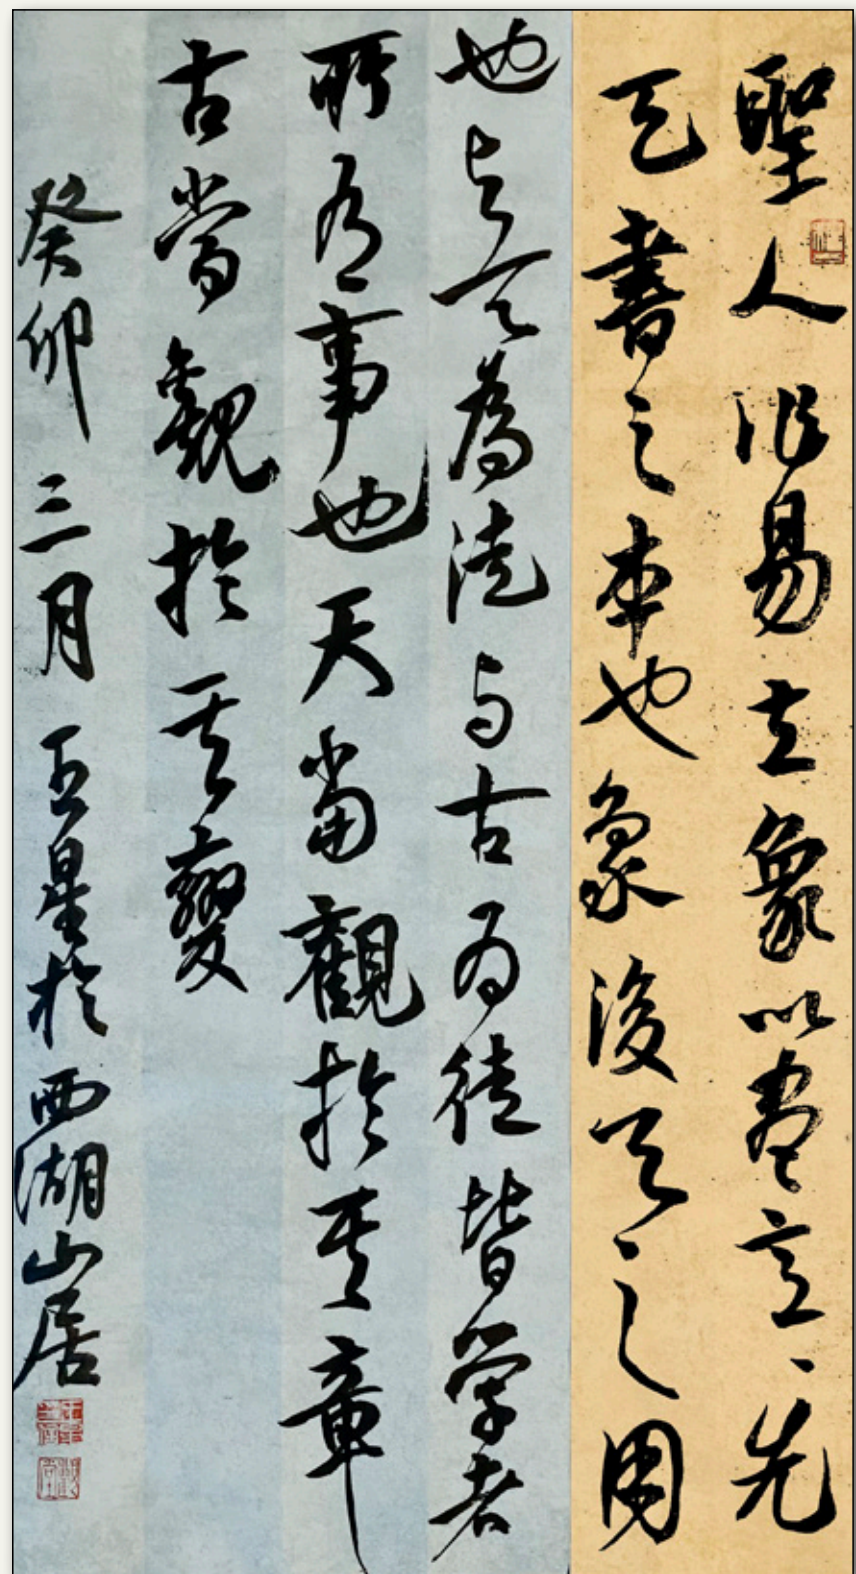 聖人作易立象以盡意〻先
天書之本也象後天之用
也与天為徒与古為徒皆学者
所有事也天當觀於其章
古當觀於其變
癸卯三月王星於西湖山居